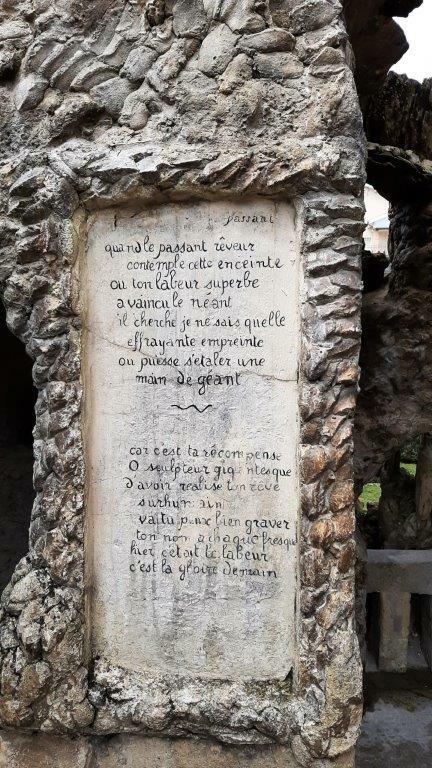 passant
quand le passant rêveur
contemple cette enceinte
ou ton labeur superbe
a vaincu le néant
il cherche je ne sais quelle
effrayante empreinte
ou puisse s'etaler une
main de géant
car c'est ta récompense
O sculpteur gigantesque
d'avoir réalisé ton rêve
surhumain
va tu peux bien graver
ton nom a chaque fresque
hier c'était le labeur
c'est la gloire demain